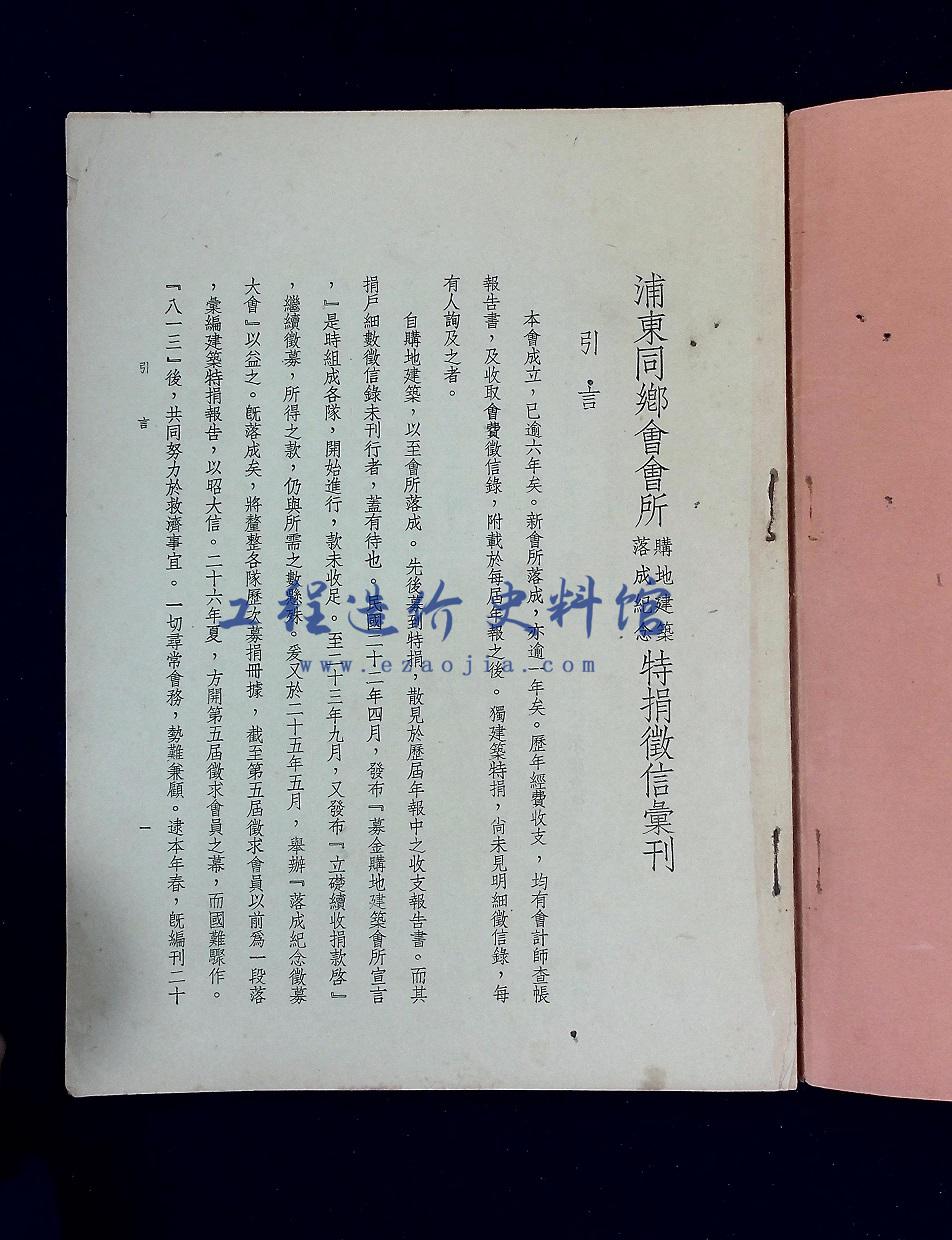 浦東同鄉會會所購地建築落成紀念特捐徵信彙刊
引言
本會成立，已逾六年矣。新會所落成，亦逾一年矣。歷年經費收支，均有會計師查帳
報告書，及收取會費徵信錄，附載於每屆年報之後。獨建築特捐，尚未見明細徵信錄，每
有人詢及之者。
自購地建築，以至會所落成。先後募到特捐，散見於歷屆年報中之收支報告書。而其
捐戶細數徵信錄未刊行者，蓋有待也。民國二十二年四月，發布『募金購地建築會所宣言
，』是時組成各隊，開始進行，款未收足。至二十三年九月，又發布『立礎續收捐款啓』
，繼續徵募，所得之款，仍與所需之數懸殊。爰又於二十五年五月，舉辦『落成紀念徵募
大會』以益之。旣落成矣，將釐整各隊歷次募捐冊據，截至第五屆徵求會員以前爲一段落
，彙編建築特捐報告，以昭大信。二十六年夏，方開第五屆徵求會員之幕，而國難驟作。
『八一三』後，共同努力於救濟事宜。一切尋常會務，勢難兼顧。逮本年春，旣編刊二十
引言
一
工程造价史料馆
www.ezaojia.com